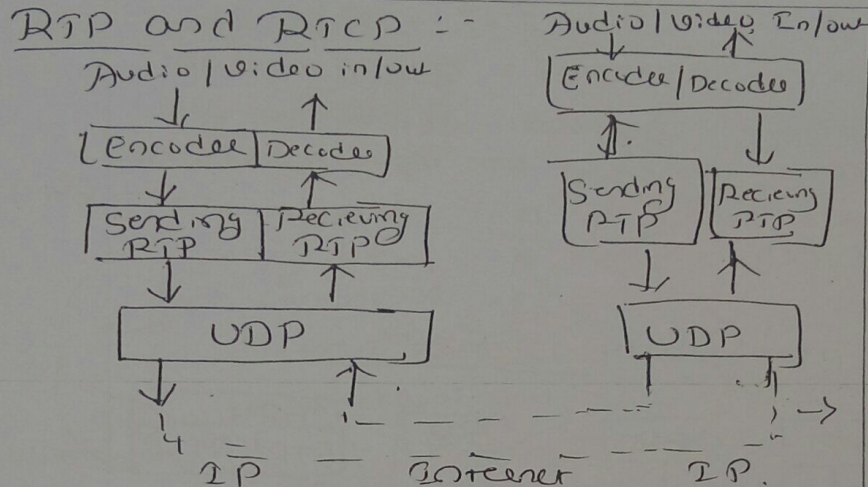 RTP and RTCP :-
Audio/Video in/out
Encoder Decoder
Sending RTP
Recieving RTP
UDP
Audio/Video In/out
Encoder/Decoder
Sending RTP
Recieving RTP
UDP
IP
IP.